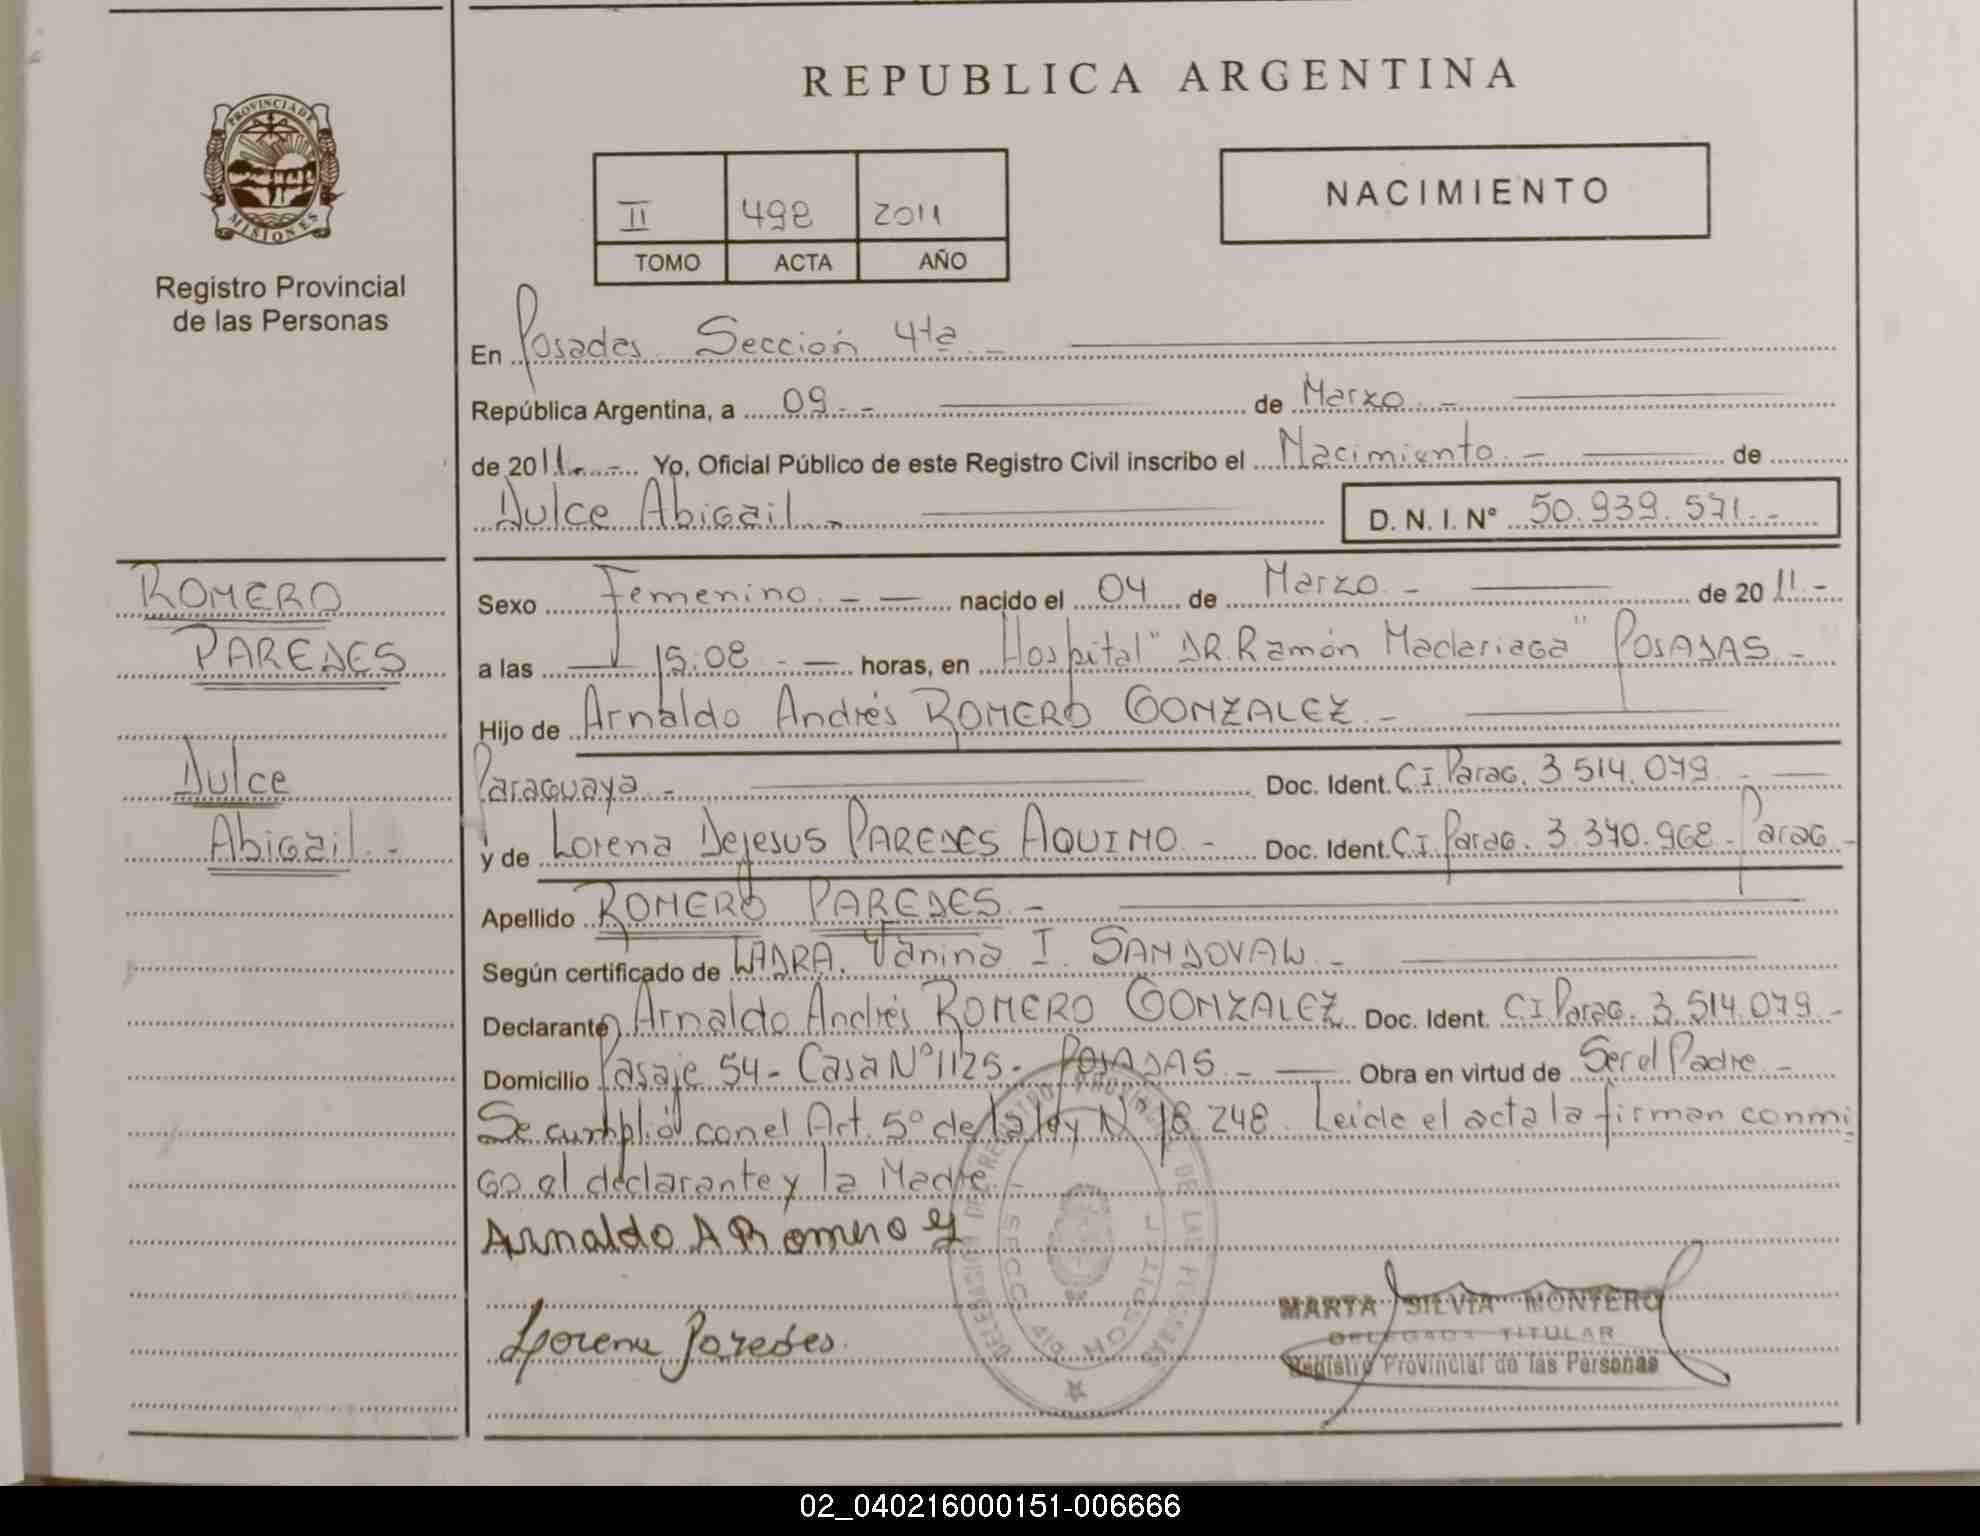 REPUBLICA ARGENTINA
PROVINCIA DE
MISIONES
Registro Provincial
de las Personas
NACIMIENTO
II 498 2011
TOMO ACTA AÑO
En Posadas Sección 4ta.-
República Argentina, a 09.- de Marzo.-
de 2011.- Yo, Oficial Público de este Registro Civil inscribo el Nacimiento.- de
Dulce Abigail.- D. N. I. N° 50.939.571.-
ROMERO
PAREDES
Dulce
Abigail.-
Sexo Femenino.- nacido el 04 de Marzo.- de 2011.-
a las 15:08.- horas, en Hospital "DR. Ramón Madariaga" POSADAS.-
Hijo de Arnaldo Andrés ROMERO GONZALEZ.-
Paraguaya.- Doc. Ident. C.I. Parag. 3.514.079.-
y de Lorena Dejesus PAREDES AQUINO.- Doc. Ident. C.I. Parag. 3.370.968.- Parag.-
Apellido ROMERO PAREDES.-
Según certificado de Vanina I. SANDOVAL.-
Declarante Arnaldo Andrés ROMERO GONZALEZ Doc. Ident. C.I. Parag. 3.514.079.-
Domicilio Pasaje 54- Casa N° 1125- POSADAS.- Obra en virtud de Ser el Padre.-
Se cumplió con el Art. 5° de la ley N° 18.248. Leida el acta la firman conmi
go el declarante y la Madre.-
Arnaldo A Romero G
Lorena Paredes.
SECC. 4ta HOSPITAL
MARTA SILVIA MONTERO
DELEGADA TITULAR
Registro Provincial de las Personas
02_040216000151-006666